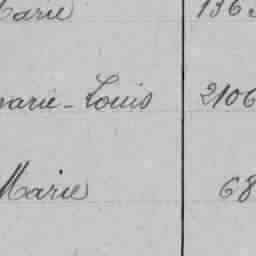 Marie 136
marie-Louis 2106
Marie 68